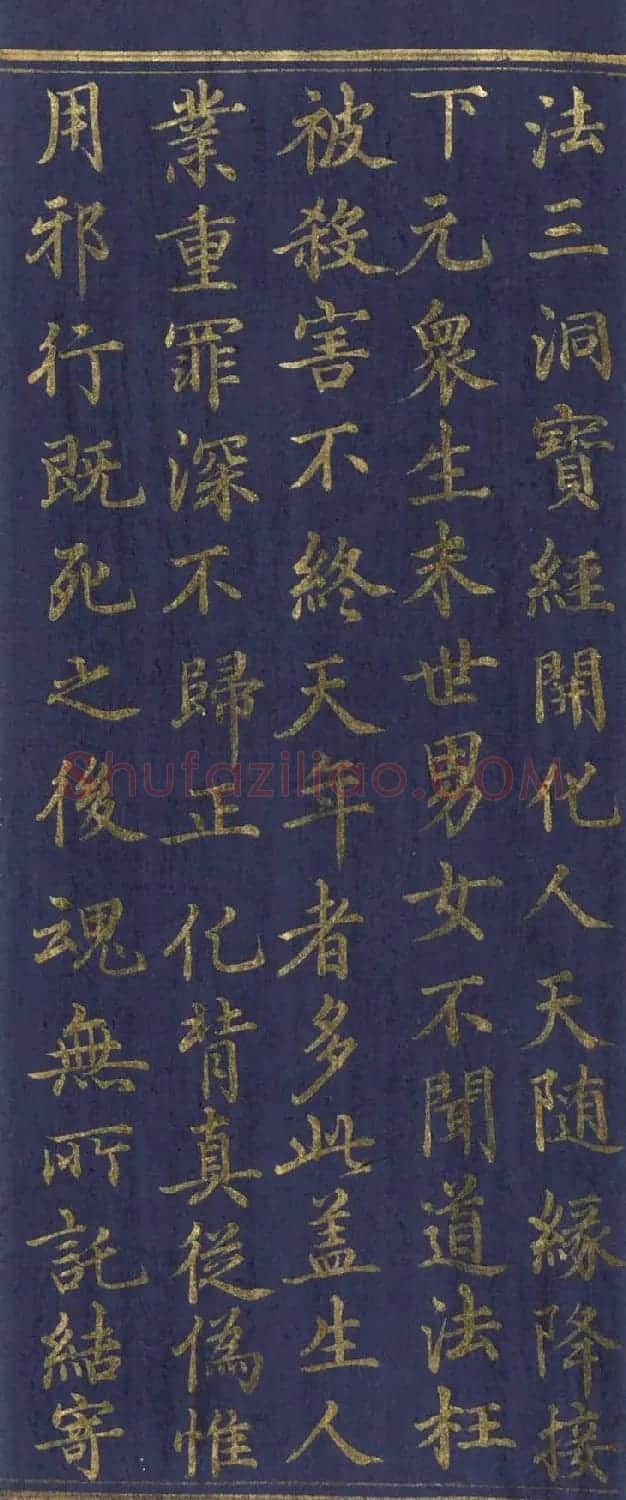 法三洞寶經開化人天随緣降接
下元眾生末世男女不聞道法枉
被殺害不終天年者多此盖生人
業重罪深不歸正化背真從偽惟
用邪行既死之後魂無所託結寄
Shufaziliao.COM